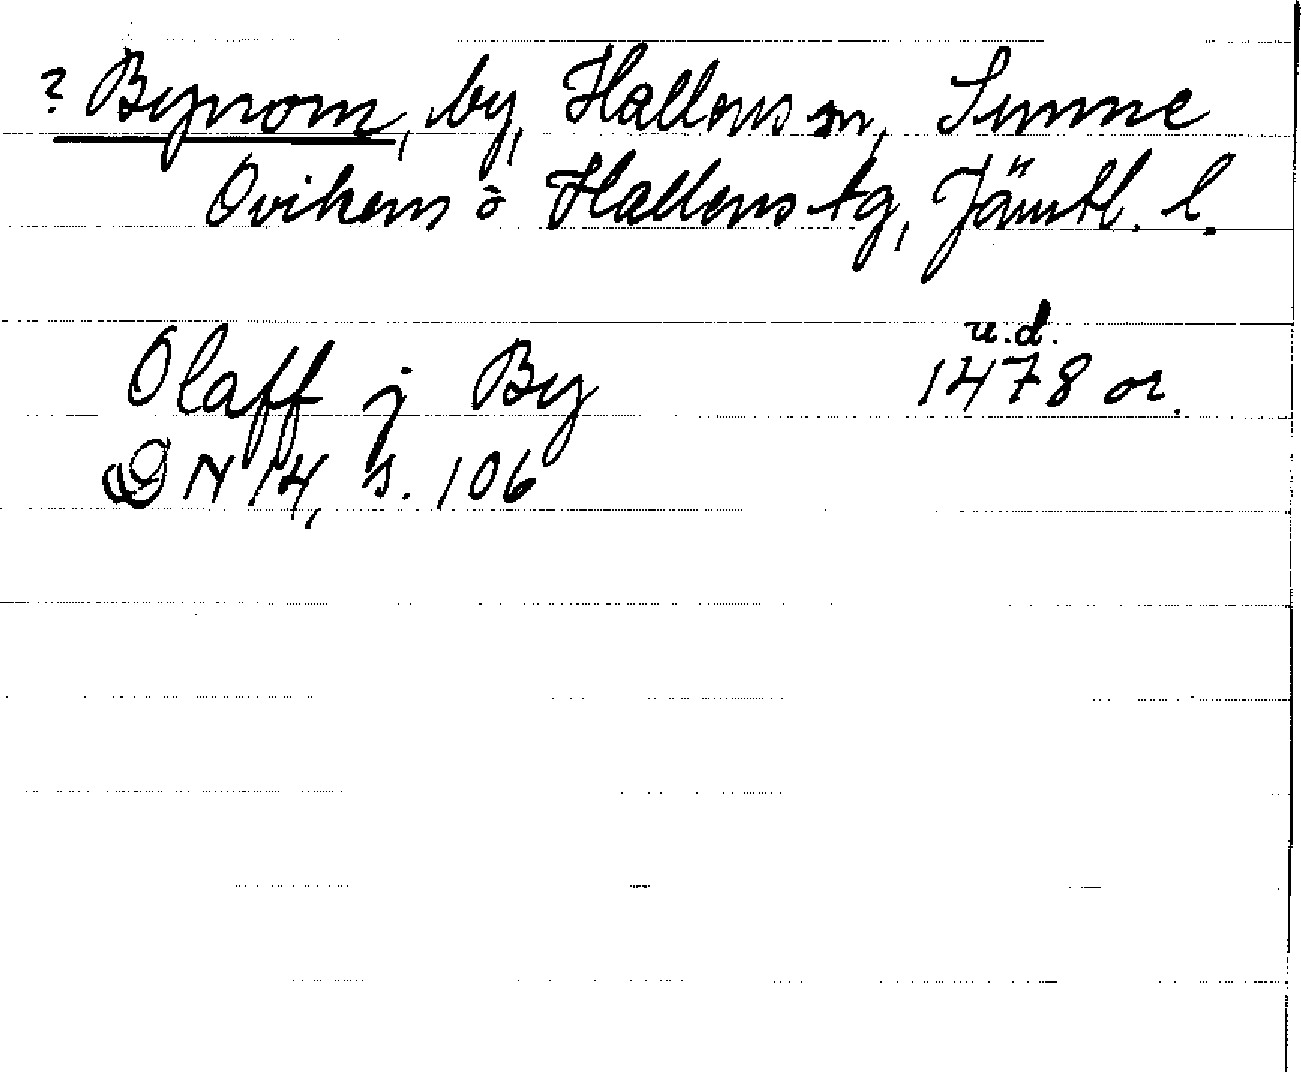 ? Bynom, by, Hallens sn, Sunne
Ovikens o Hallens tg, Jämtl. l.
u.d.
Olaff j By 1478 or.
DN 14, s. 106